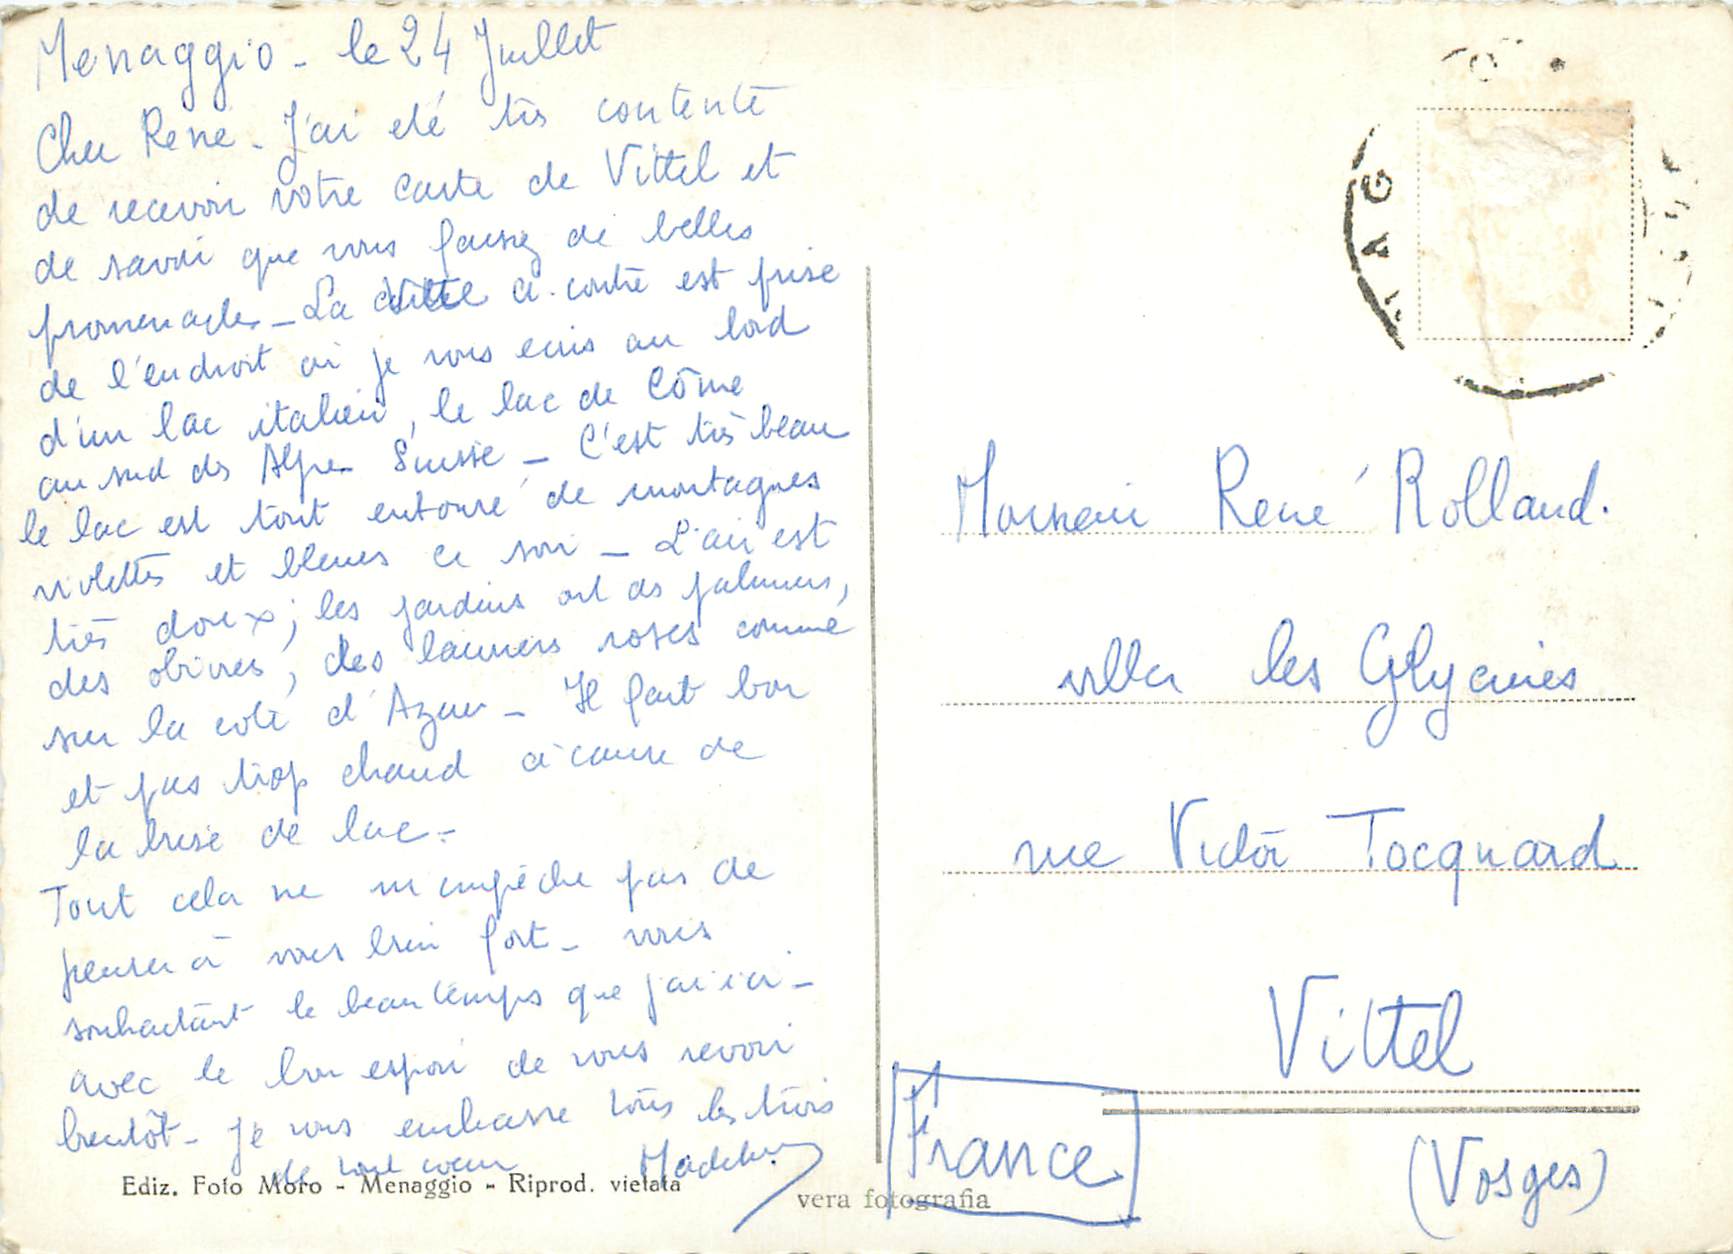 Menaggio - le 24 Juillet
Cher René - J'ai été très contente
de recevoir votre carte de Vittel et
de savoir que vous faisiez de belles
promenades - La ci-contre est prise
de l'endroit où je vous écris au bord
d'un lac italien, le lac de Côme
au sud des Alpes Suisse - C'est très beau
le lac est tout entouré de montagnes
violettes et bleues ce soir - L'air est
très doux; les jardins ont des palmiers,
des oliviers, des lauriers roses comme
sur la cote d'Azur - Il fait bon
et pas trop chaud à cause de
la brise de lac -
Tout cela ne m'empêche pas de
penser à vous bien fort - vous
souhaitant le beau temps que j'ai ici -
avec le bon espoir de vous revoir
bientôt - je vous embrasse tous les trois
de tout coeur
Ediz. Foto Moro - Menaggio - Riprod. vietata
vera fotografia
Monsieur René Rolland.
villa les Glycines
rue Victor Tocquard
Vittel
France
(Vosges)